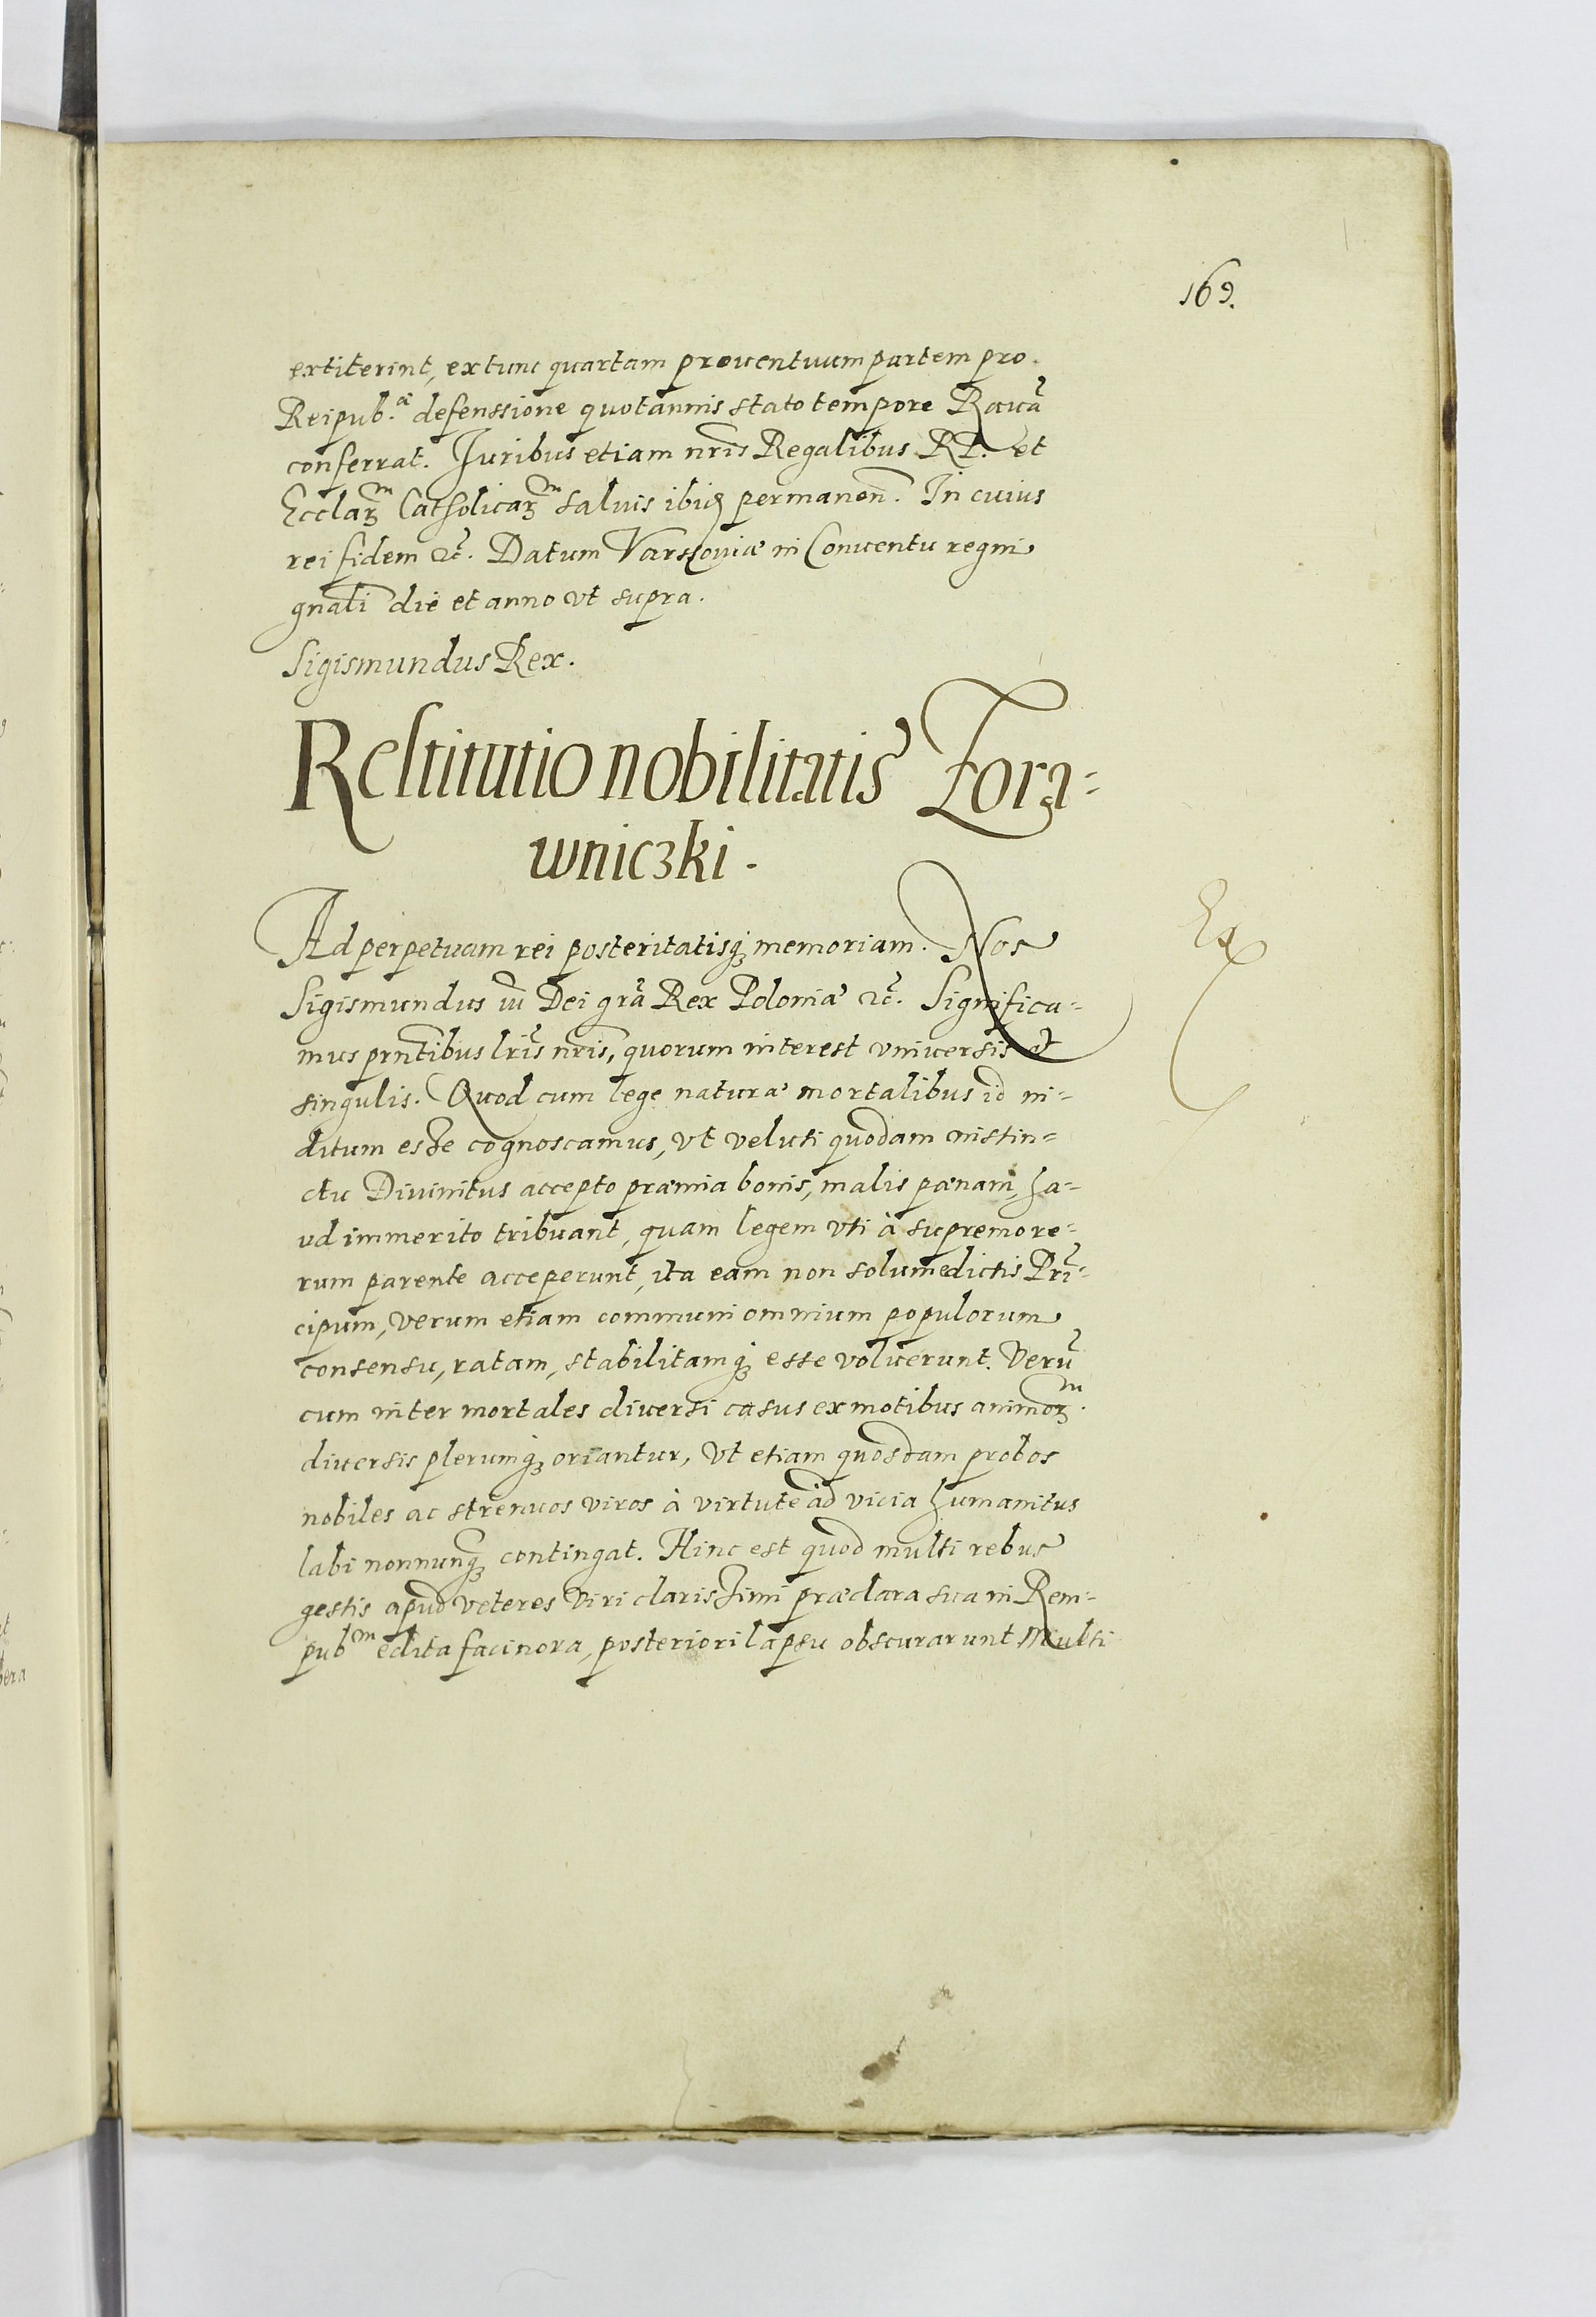 169.
extiterint, extunc quartam prouentuum partem pro
Reipub.ᵃᵉ defenssione quotannis stato tempore Rauã
conferrat. Juribus etiam nr̃is Regalibus RP. et
Ecclaꝝᵐ Catholicaꝝᵐ saluis ibiq permanen̄. In cuius
rei fidem ꝛc̃. Datum Varssouiæ in Conuentu regni
gn̄ali die et anno vt supra.
Sigismundus Rex.
Restitutio nobilitatis Zora=
wniczki.
Ad perpetuam rei posteritatisqꝫ memoriam. Nos
Sigismundus iii Dei gr̃a Rex Poloniæ ꝛc̃. Significa=
mus prn̄tibus lr̃is nr̃is, quorum interest vniuersis et
singulis. Quod cum lege naturæ mortalibus id in=
ditum esse cognoscamus, vt veluti quodam instin=
ctu Diuinitus accepto præmia bonis, malis pœnam, ha=
ud immerito tribuant, quam legem vti à supremo re=
rum parente acceperunt, ita eam non solum edictis Prĩ=
cipum, verum etiam communi omnium populorum
consensu, ratam, stabilitamqꝫ esse voluerunt. Verũ
cum inter mortales diuersi casus ex motibus animoꝝᵐ.
diuersis plerumqꝫ oriantur, Vt etiam quosdam probos
nobiles ac strenuos viros à virtute ad vicia humanitus
labi nonnunqꝫ contingat. Hinc est quod multi rebus
gestis apud veteres Viri clarissimi præclara sua in Rem=
pubᵐ edita facinora, posteriori lapsu obscurarunt Multi